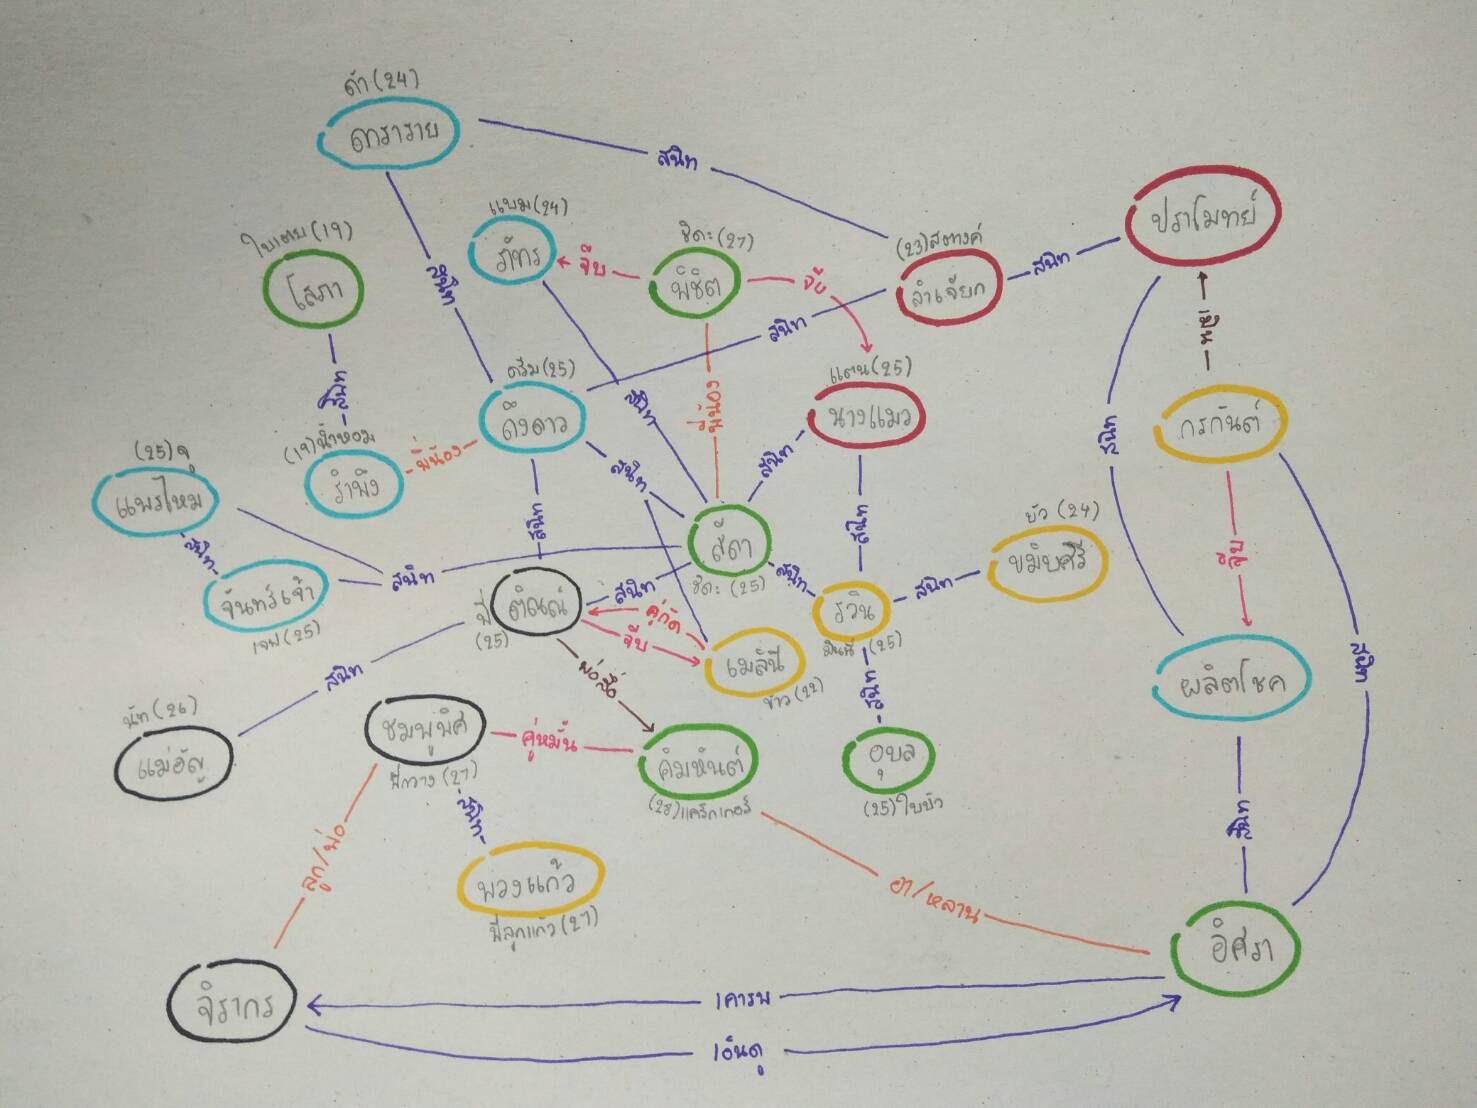 ด้า (24)
ดาราราย
สนิท
แบม (24)
ภัทร
จีบ
ชิตะ (27)
พิชิต
จีบ
(23) สตางค์
ลำเจียก
สนิท
ปราโมทย์
ใบเตย (19)
โสภา
สนิท
สนิท
สนิท
แตน (25)
นางแมว
กรกันต์
ดรีม (25)
ดึงดาว
สนิท
พี่น้อง
สนิท
สนิท
(19) น้ำหอม
รำพึง
พี่น้อง
สนิท
สนิท
(25) จู
แพรไหม
สนิท
สนิท
สนิท
บัว (24)
ขมิบศรี
จีบ
จันทร์เจ้า
เจฟ (25)
สนิท
สนิท
สีดา
ชิตะ (25)
สนิท
สนิท
รวิน
(25)
พี่
(25)
ติณณ์
คู่กัด
จีบ
เมลินี
ข้าว (22)
สนิท
ผลิตโชค
สนิท
สนิท
นัท (26)
แม่อัญ
ชมพูพิศ
พี่กวาง (27)
คู่หมั้น
คิมหันต์
(28) แคร็กเกอร์
อุบล
(25) ใบบัว
สนิท
สนิท
ลูก/พ่อ
พวงแก้ว
พี่ลูกแก้ว (27)
อา/หลาน
อิศรา
จิรากร
เคารพ
เอ็นดู